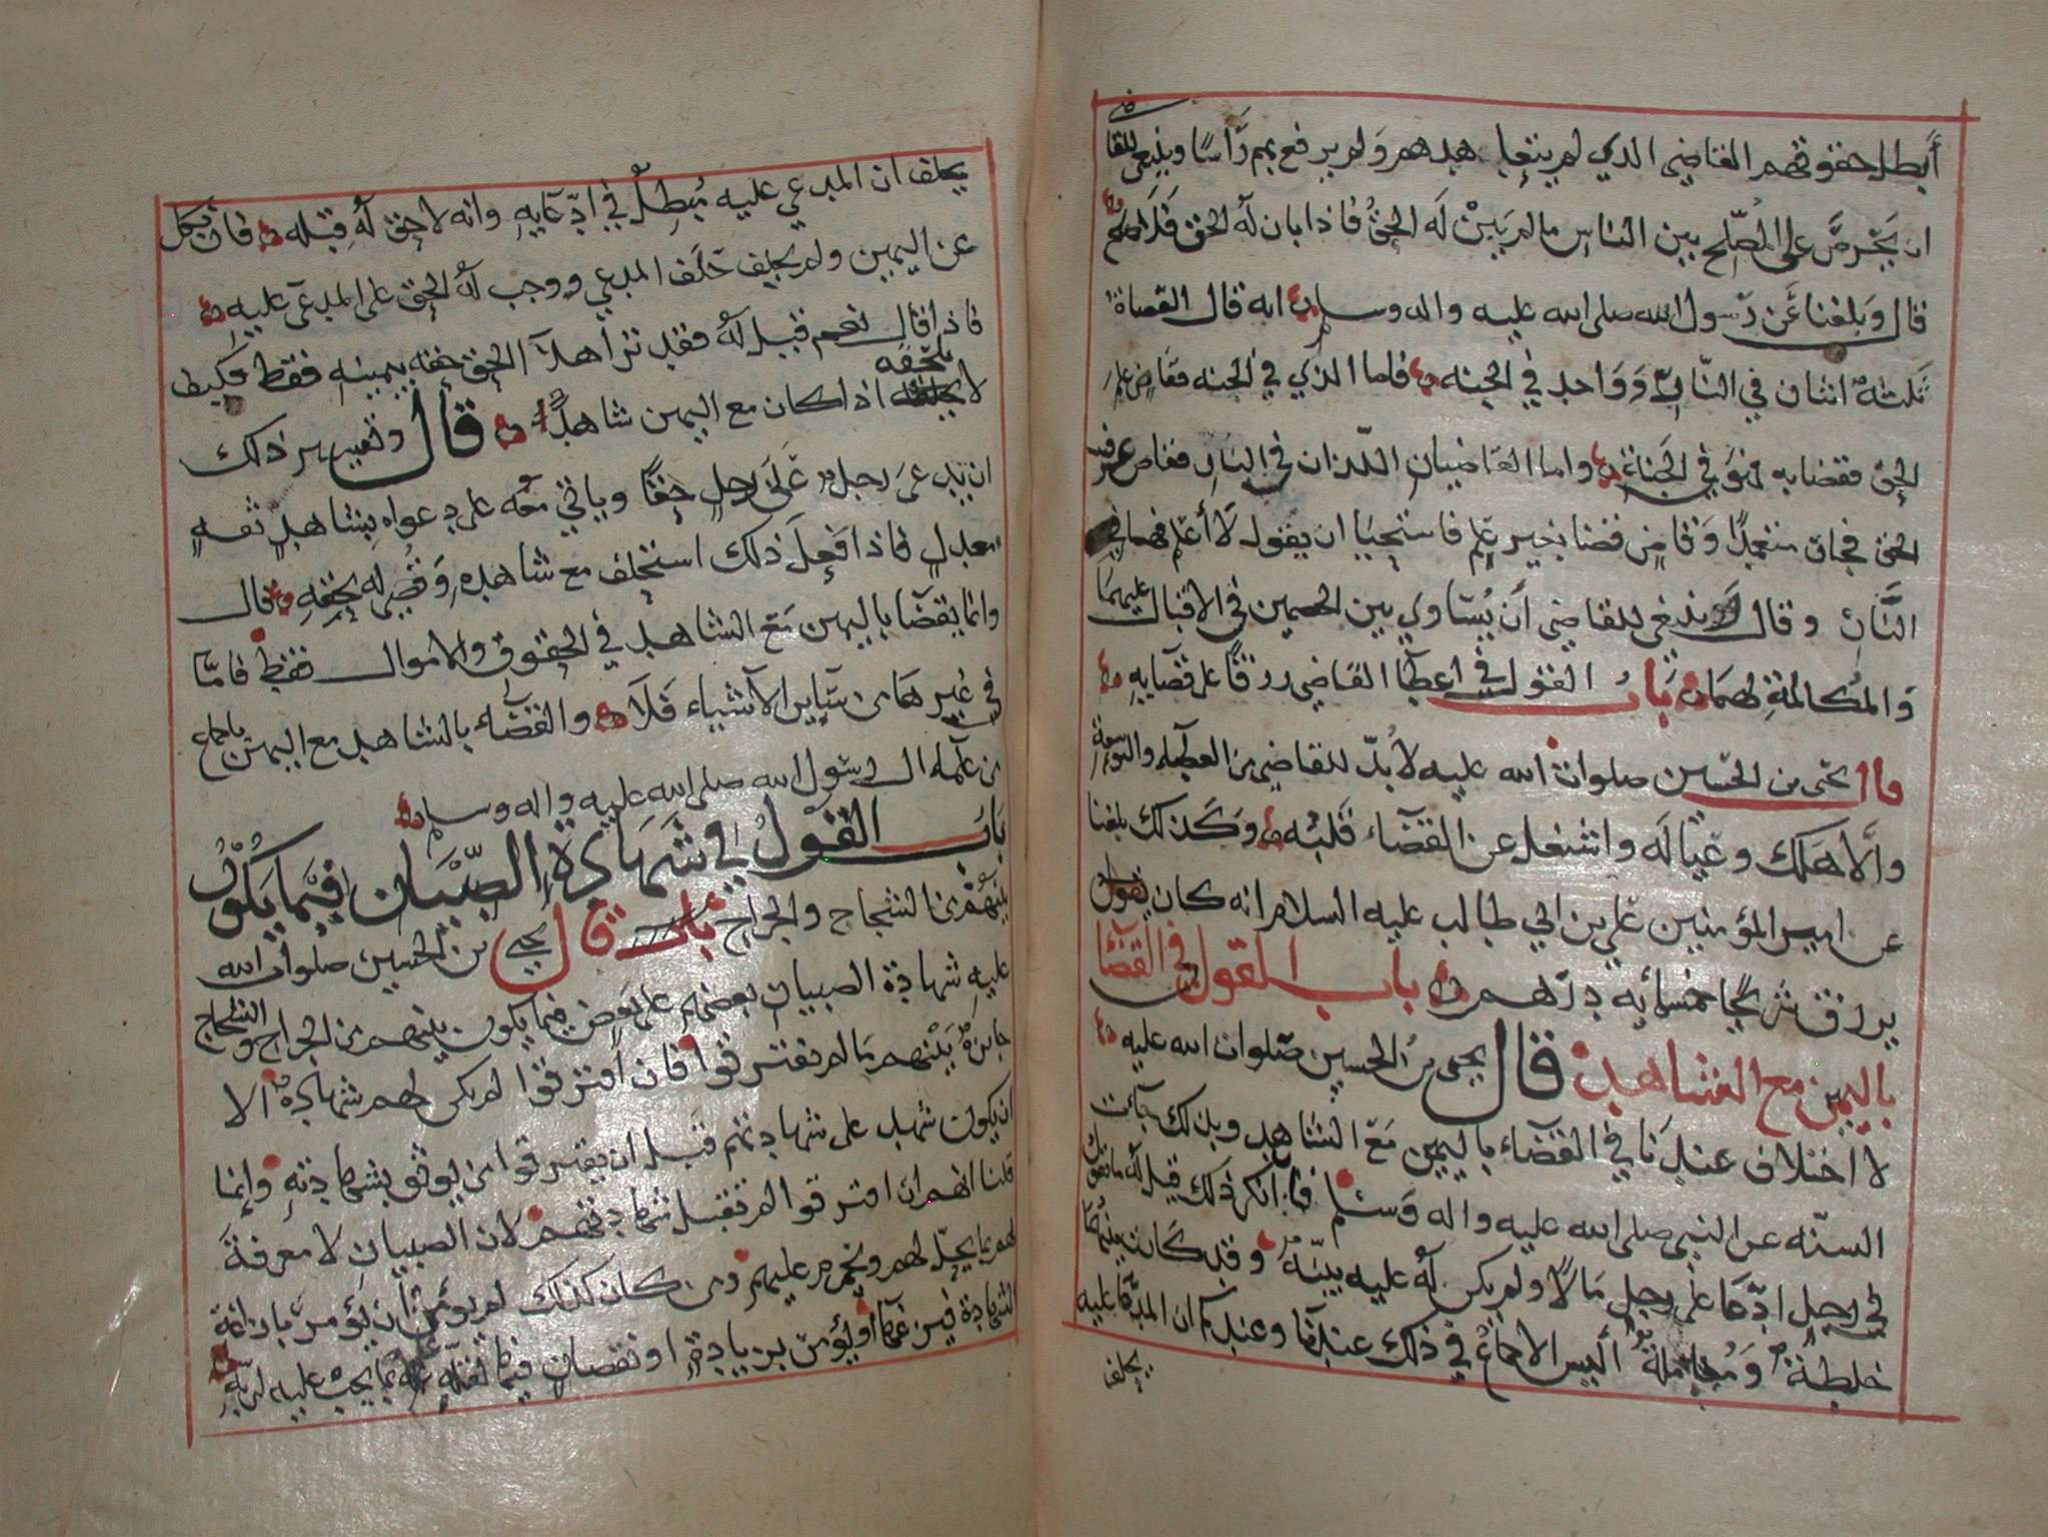 أبطل حقوقهم القاضي الذي لم يتعاهدهم ولم يرفع بهم رَأسًا وينبغي للقاضي
ان يَحرصَ على الصّلح بين الناس ما لم يَبِيْن لَه الحقُ فاذا بان لَهُ الحق فَلاَ
قال وَبلغنا عَن رَسول الله صلى الله عليه واله وسلم انه قال القضاة
ثَلثهٌ اثنان في النّار وَوَاحد في الجنه فاما الذي في الجنه فقَاضٍ علم
الحق فقضا به فهوَ في الجَنة واما القاضيان اللذان في النار فقاض عرف
الحق فجار متعمدًا وَقاضٍ قضا بغير عِلم فاستحيا ان يقول لاَ أعْلم فهما في
النَّار وقال ينبغي للقاضي أن يُسَاوي بين الخصمين في الاقبال عليهمَا
وَالمُكالمةِ لهمَا بَابُ القول في اعطآ القاضي رزقًا على قضَآيهِ
قال يحيى بن الحسين صلوات الله عليه لاَبُدّ للقاضي من العطيه والتوسعة
والاّ هَلك وعيالَه واشتغل عن القضآء قَلبُه وَكَذلك بلغنا
عن امير المؤمنين علي بن ابي طالب عليه السلام انه كان يقول
يرزق شريحًا خمسمائه درْهم باب القول في القضا
باليمين مع الشاهد قال يحيى بن الحسين صَلوات الله عليه
لا اختلاف عندنَا في القضآء باليمين مَعَ الشاهد وبذلك جآءت
السنّه عن النبي صلى الله عليه واله وَسَلم فَان انكر ذلك قيل لَه ما تقول
في رجلٍ ادّعَا على رجل مَالاً ولم يكن لَهُ عليه بيّنَة وقد كَانت بينهمَا
خلطةٌ وَمُعَاملةٌ أليس الاجماعُ في ذلك عندنَا وعندكم ان المدّعَا عليه
يحلف
يحلف ان المدعي عليه مُبطِلٌ في ادّعَايهِ وانه لا حق لَهُ قِبَله فان نكل
عن اليمين ولم يحلف حَلَف المدعي ووجب لَهُ الحق على المدعَى عليهِ
فاذا قال نعم قيل لَهُ فقد تَرَا هذا الحق حقه بيمينهِ فقط فكيف
لا يلحقه اذا كان مع اليمين شاهدٌ قال وتفسير ذلك
ان يدعىَ رجل عَلَى رجلٍ حَقًّا وياتي معَه على دعواه بشاهدٍ ثقهٍ
معدل فاذا فَعلَ ذلك استحلف مع شاهده وَقُضِي له بحقهِ قال
وانما يقضَا باليمين مَعَ الشاهد في الحقوق والاموال فقط فامّا
في غير هَا من سَآيِر الاشياء فَلاَ والقضَاء بالشاهد مع اليمين باجماع
من علماء ال رسول الله صلى الله عليه واله وسلم
بَابُ القَوْلُ في شَهَادة الصّبْيَان فِيمَا يَكُونُ
بينهم من الشجاج والجراح بَاب قَال يَحيى بن الحسين صلوات الله
عليهِ شهادة الصبيان بعضهم على بَعض فيما يكون بينهم من الجراح والشجاج
جايزةٌ بَيْنهم مَا لم تفترقوا فان افترقوا لم يكن لهم شهادةٌ الا
ان يكون شهد على شهادتهم قبل ان يفترقوا من يوثق بشهادتهِ وإنما
قلنا انهم ان افترقوا لم تقبل شهادتهم لان الصبيان لا معرفةَ
لهم بما يحِلّ لهم ويحرم عليهم ومن كان كذلك لم يؤمن ان
الشهادة او يُؤمن بزيادةٍ او نقصان